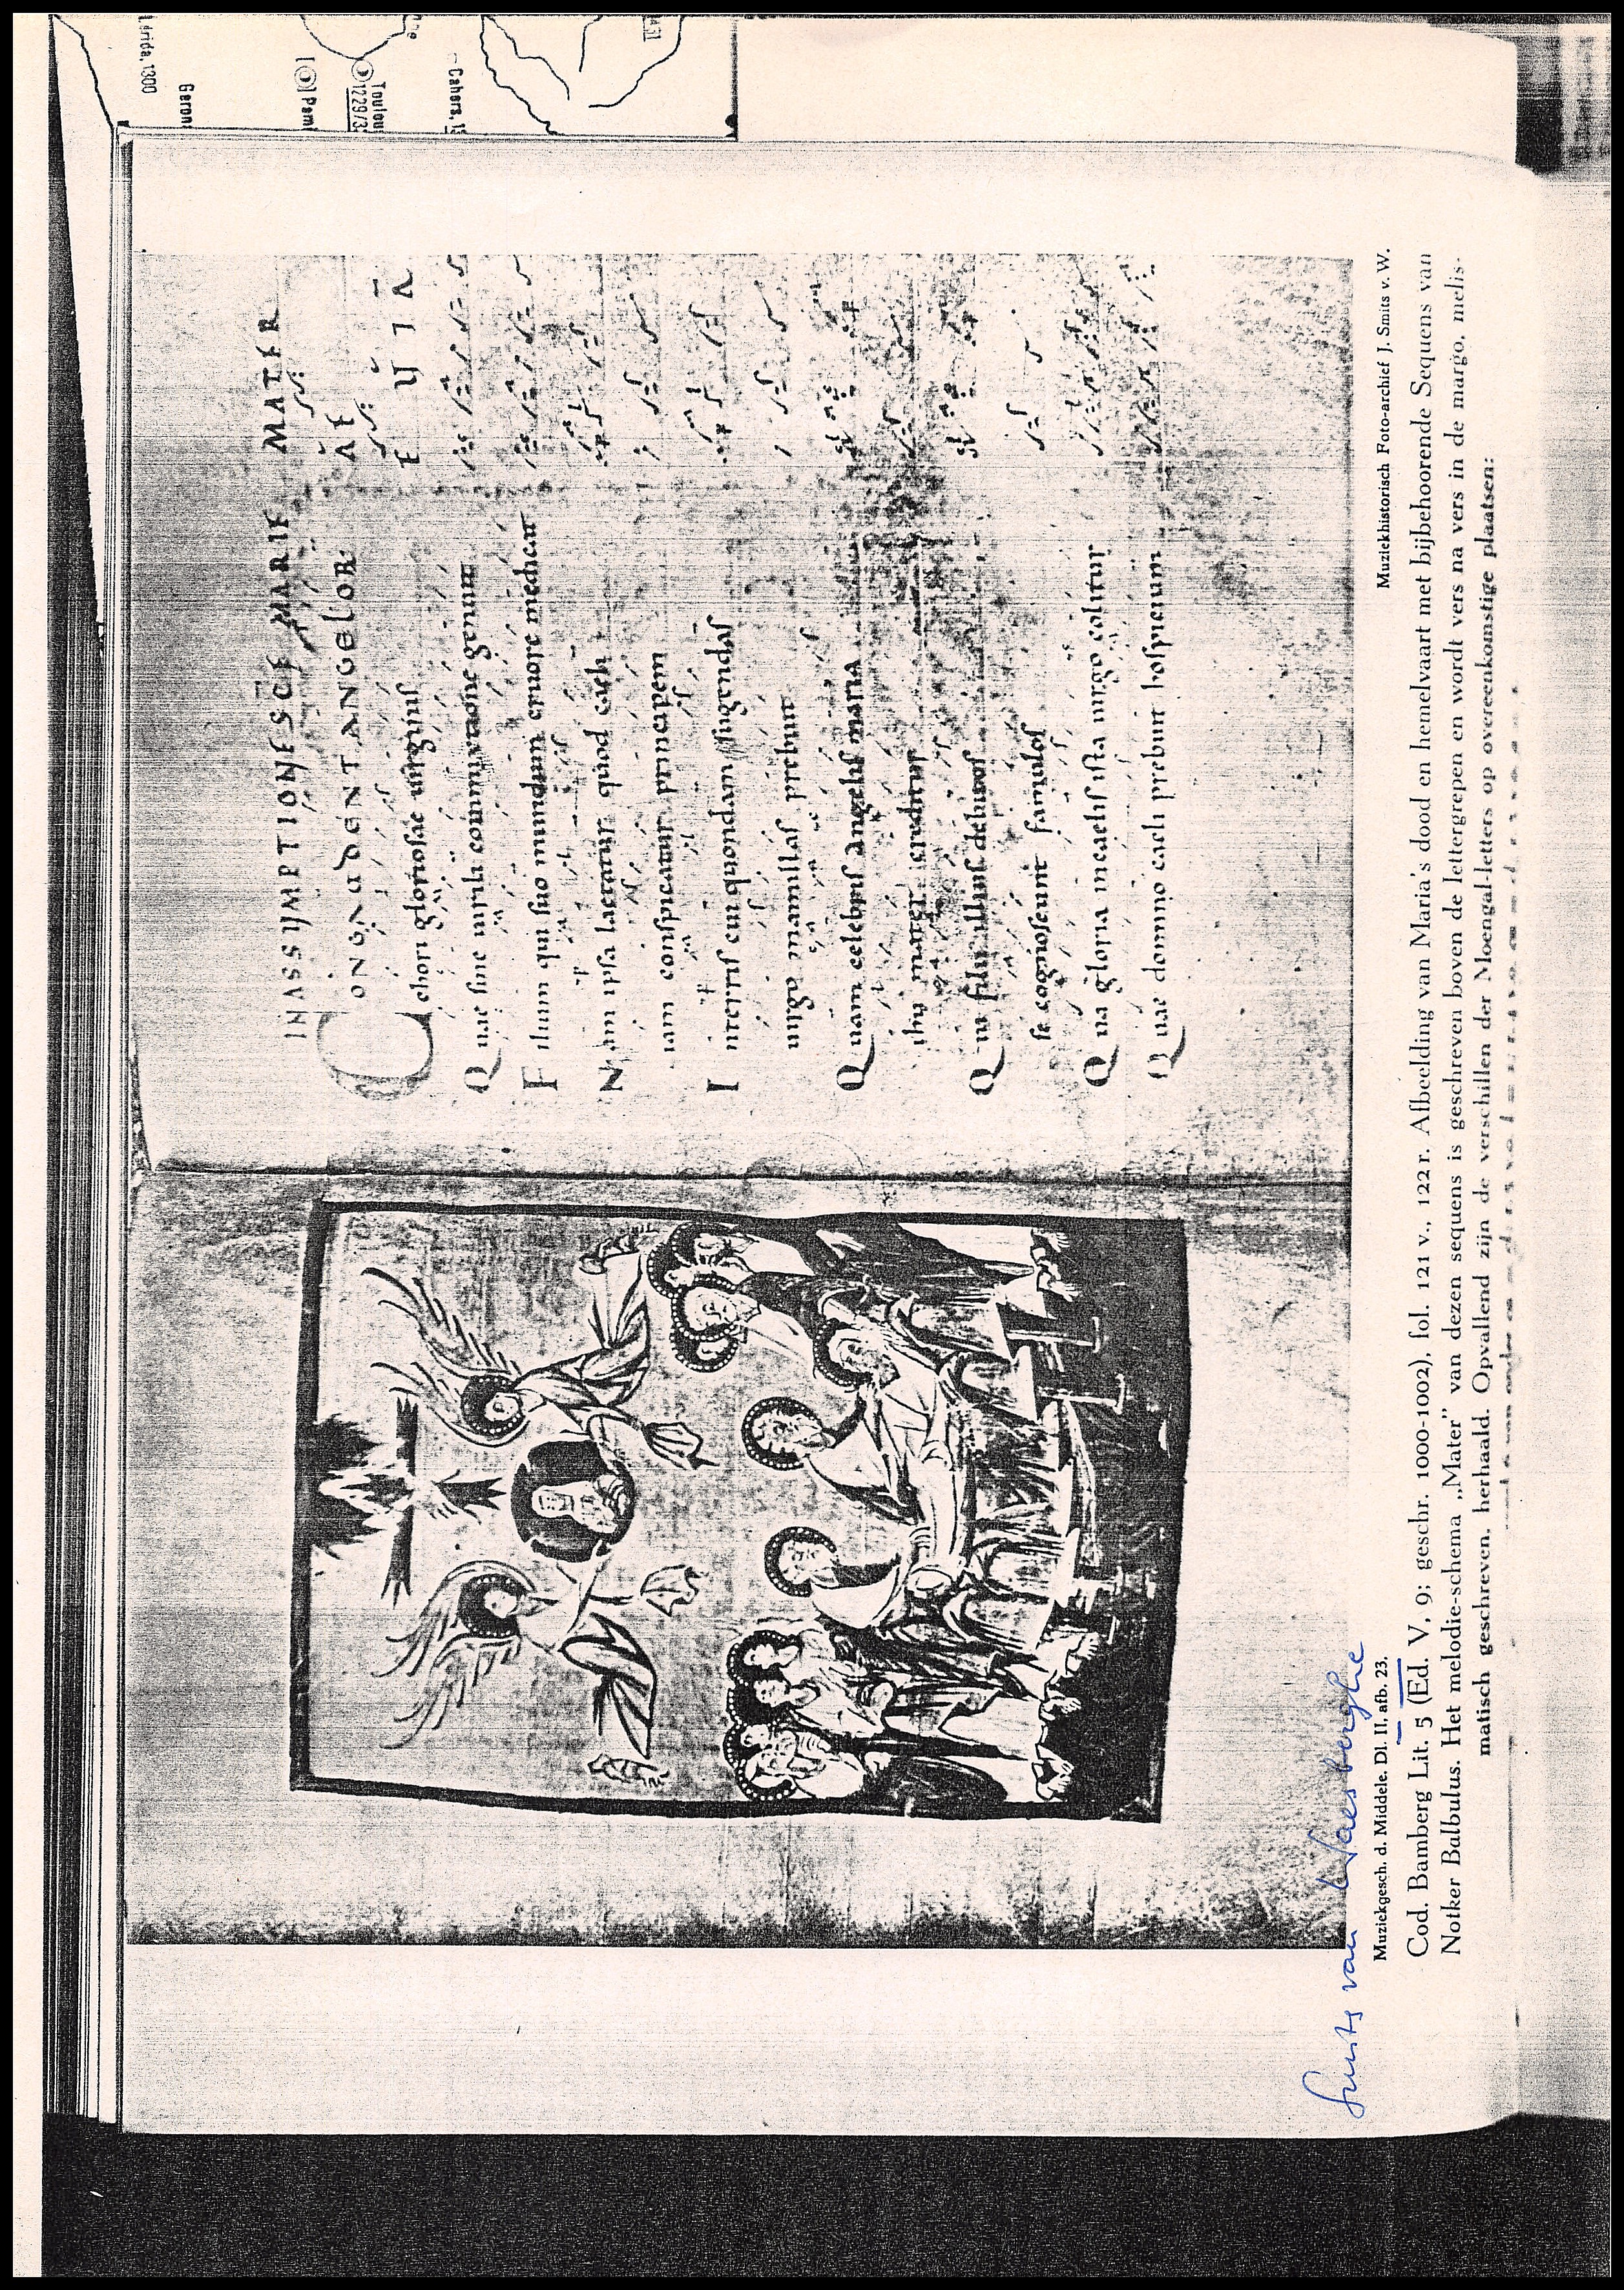 IN ASSUMPTIONE SCE MARIE MATER
CONGAUDENT ANGELOR
chori gloriosae uirginis
Quae sine uirili commixtione genuit
Filium qui suo mundum cruore medicat
Nam ipsa laetatur quod caeli
iam conspicatur principem
In terris cui quondam sugendas
uirgo mamillas prebuit
Quam celebris angelis maria
ihu mater creditur
Qui filii illius debitos
se cognoscunt famulos
Qua gloria in caelis ista uirgo colitur
Quae domino caeli prebuit hospicium
Smits van Waesberghe
Muziekgesch. d. Middele. Dl. II, afb. 23.
Muziekhistorisch Foto-archief J. Smits v. W.
Cod. Bamberg Lit. 5 (Ed. V, 9; geschr. 1000-1002), fol. 121 v., 122 r. Afbeelding van Maria's dood en hemelvaart met bijbehoorende Sequens van
Notker Balbulus. Het melodie-schema „Mater” van dezen sequens is geschreven boven de lettergrepen en wordt vers na vers in de margo, melis-
matisch geschreven, herhaald. Opvallend zijn de verschillen der Moengal-letters op overeenkomstige plaatsen:
Lerida, 1300
Geron
Pam
Toulou
1229/3
Cahors, 13